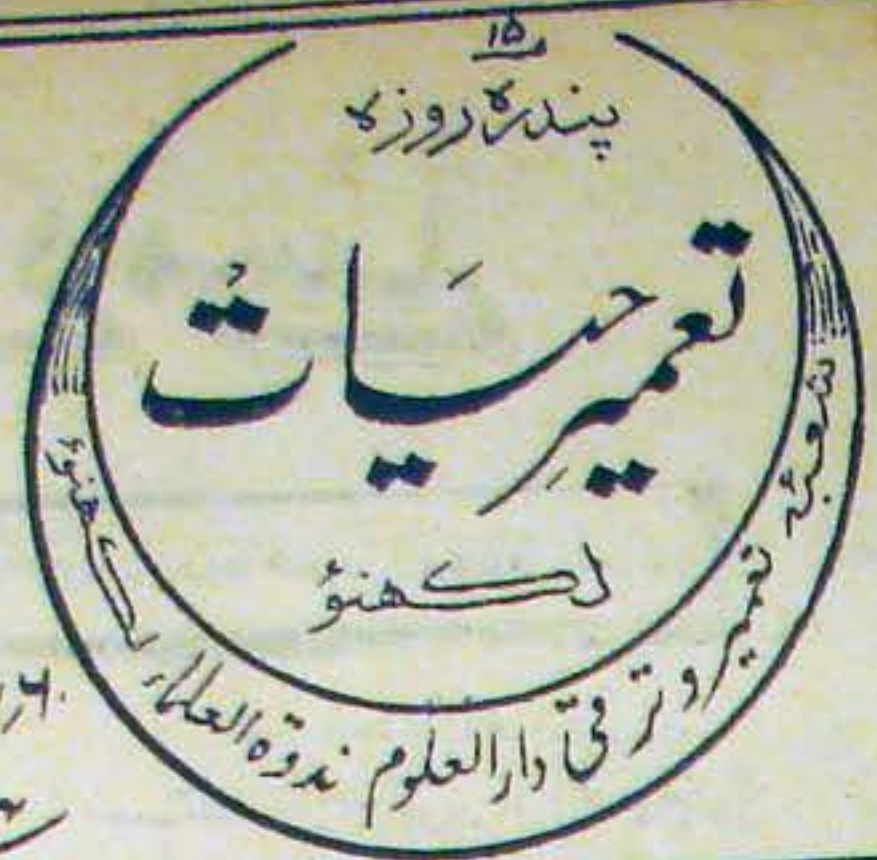 ۱۵
پندرہ روزہ
تعمیرِ حَیات
لکھنؤ
شعبۂ تعمیر و ترقی دارالعلوم ندوۃ العلماء لکھنؤ